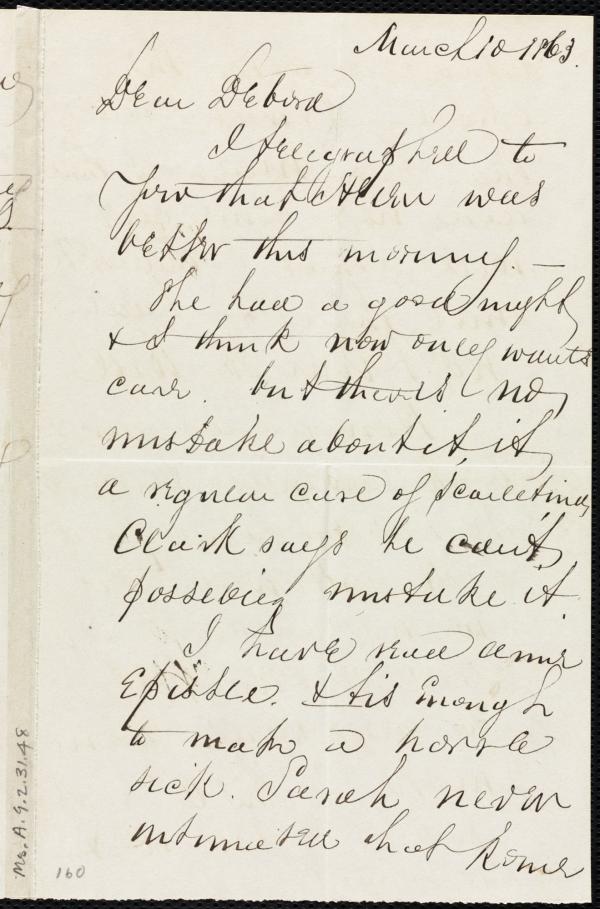 March 10 1863.
Dear Debora
I telegraphed to
you that Ellen was
better this morning. —
She had a good night,
& I think now only wants
care. but there is no
mistake about it, it,
a regular case of Scarletina,
Clark says he can't,
possebly mistake it.
I have read
Epistle. & tis enough
to make a horse
sick. Sarah never
intimated that
Ms. A. 9. 2. 31. 48
160